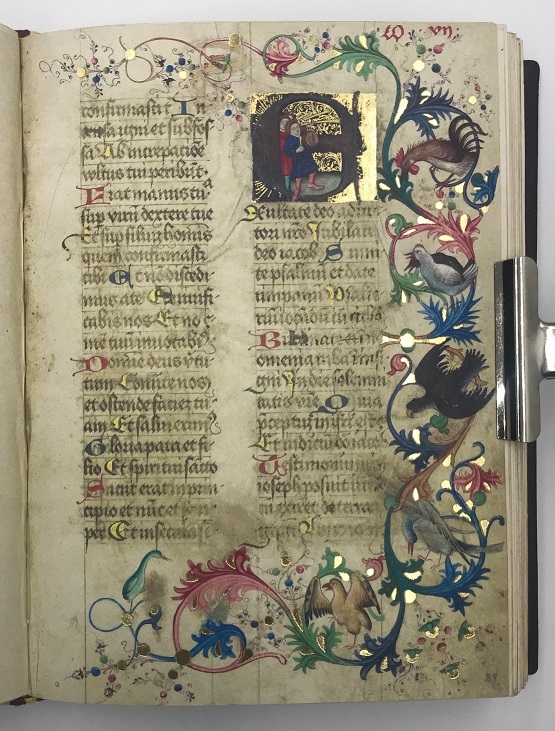 confirmasti In
censa igni et suffos
sa Ab increpatiōe
vultus tui peribūt
Fiat manus tua
sup virū dextere tue
Et sup filiū hominis
quem confirmasti
tibi Et nō discedi
mus a te Vivifi
cabis nos Et no
men tuū invocabi
Domine deus vtu
tum Converte nos
et ostende faciē tu
am Et salvi erimꝰ
Gloria patri et fi
lio Et spiritui sācto
Sicut erat in prin
cipio et nūc et sem
per Et in secula
E
xultate deo adiu
tori nro Jubilate
deo iacob Sumi
te psalmū et date
timpanū
riū iocūdū cū
in
omenia tuba
gni In die solemni
tatis vre Quia
preceptū in est
Et iudiciū deo
Testimonium in
ioseph posuit
exiret de terra